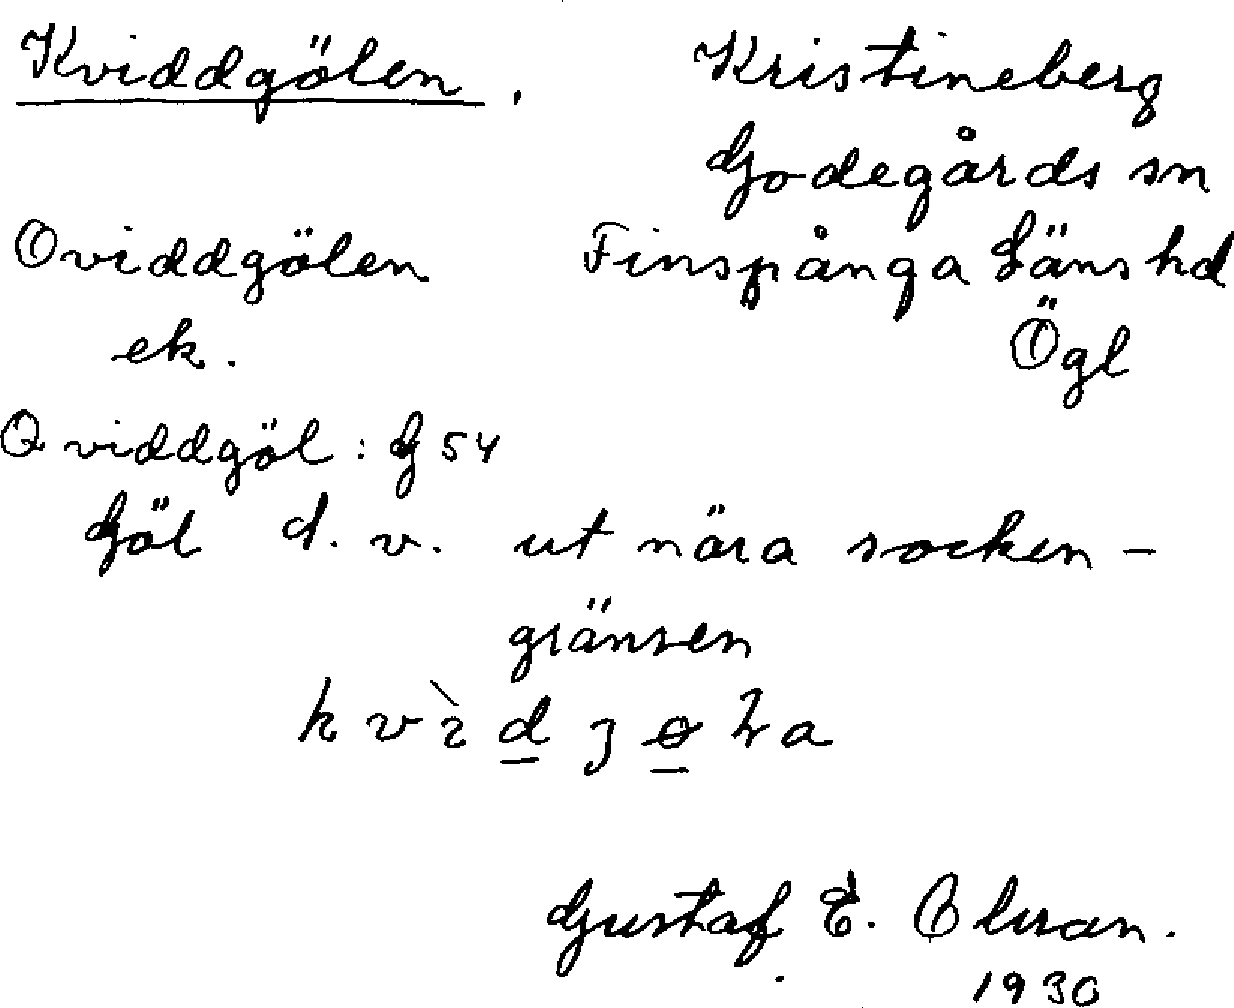 Kviddgölen,
Kristineberg
Godegårds sn
Oviddgölen
Finspånga Läns hd
ek.
Ögl
Qviddgöl: G 54
Göl d. v. ut nära socken-
gränsen
Gustaf E.
1930